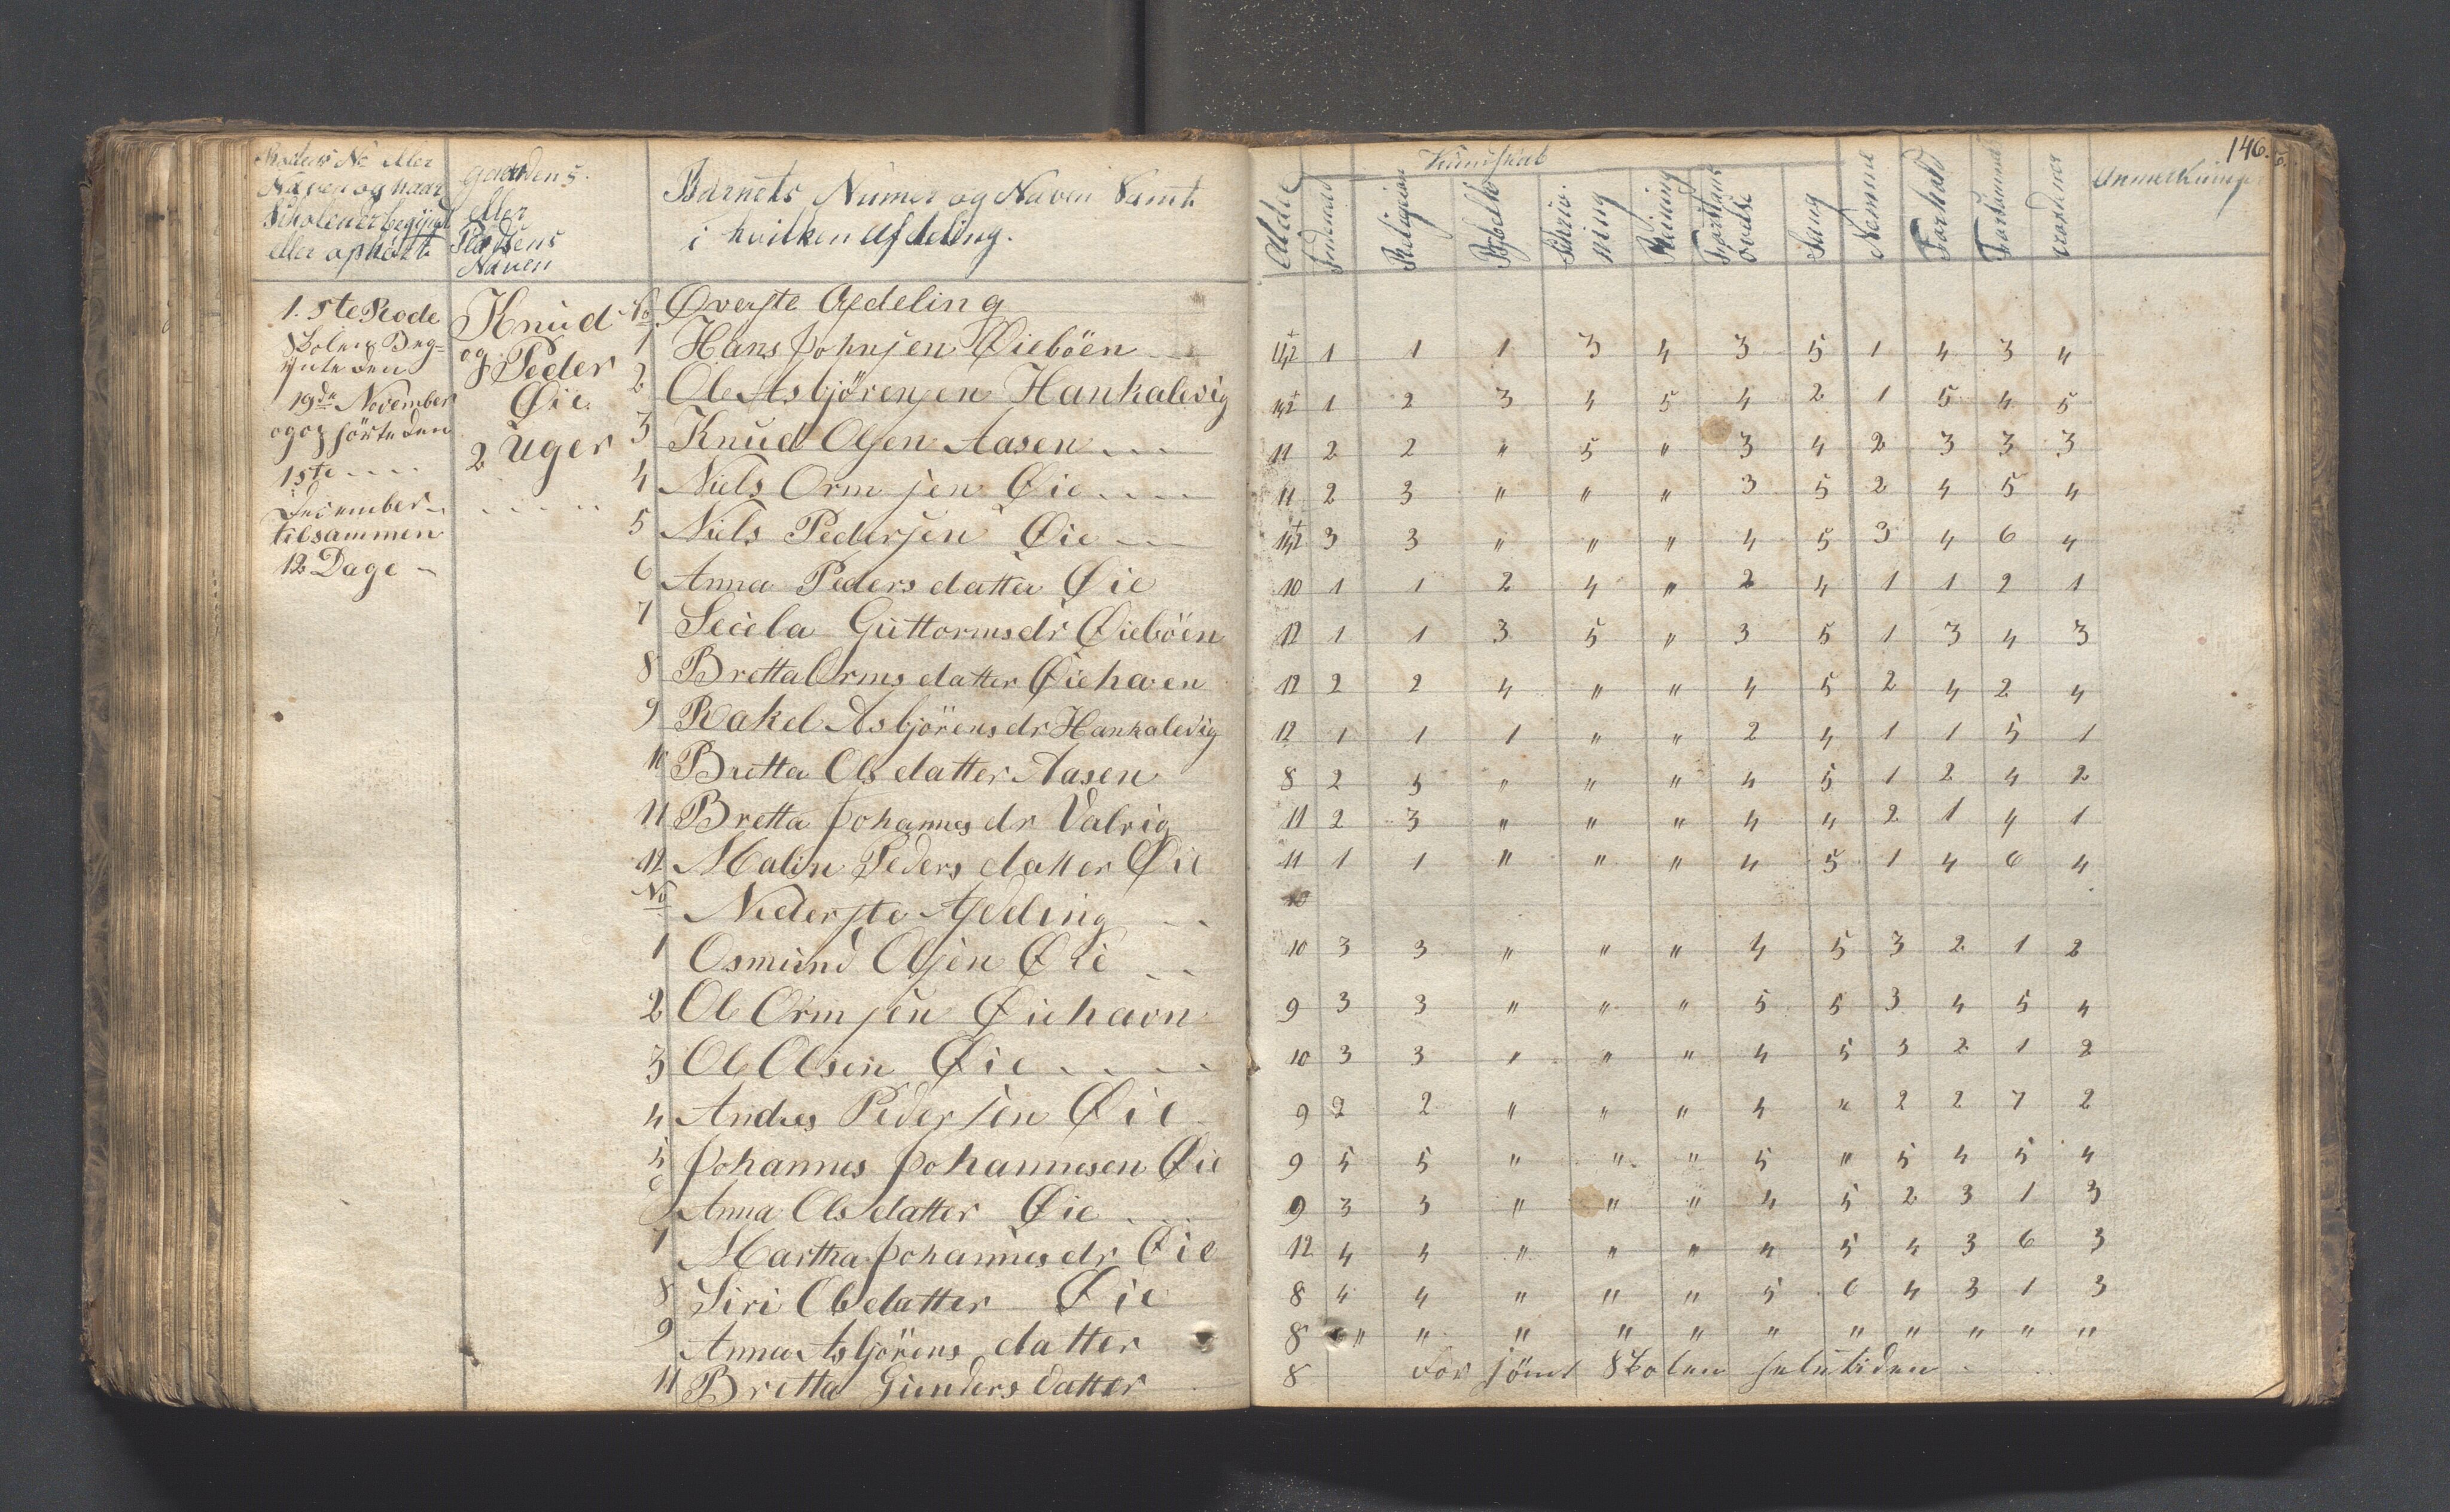 Rodens No eller
Navn og naar
Skolen er begynt
eller ophørt
gaardens
eller
Pladsens
Naven
Barnets Numer og Naven Samt
i hvilken Afdeling.
1. ste Rode
Skolen Beg=
ynte den
19de November
og ophörte den
1ste - - - -
December -
tilsammen
12 Dage -
Knud
og Peder
Øie
2 Uger
No Øverste Afdeling
1 Hans Johnsen Øieböen
2 Ole Asbjörensen Hankalevig
3 Knud Olsen Aasen - - -
4 Niels Ormsen Øie - - - -
5 Niels Pedersen Øie - -
6 Anna Pedersdatter Øie
7 Secela Guttormsdr Øieböen
8 Bretta Ormsdatter Øiehaven
9 Rakel Asbjörensdr Hankalevig
10 Bretta Olsdatter Aasen
11 Bretta Johannesdr Valvig
12 Malin Pedersdatter Øie
No Nederste Afdeling
1 Osmund Olsen Øie - -
2 Ole Ormsen Øiehavn
3 Ole Olsen Øie - - - -
4 Andres Pedersen Øie
5 Johannes Johannesen Øie
6 Anna Olsdatter Øie
7 Martha Johannesdr Øie
8 Siri Olsdatter Øie
9 Anna Asbjörens datter
11 Bretta Gunders datter
146.
Kundskab
Alder Religion Skriv ning Regning Forstands övelse Sang Nemme Forhold Anmerkninger
1 1 1 3 4 3 5 1 4 3 4
1 2 3 4 5 4 2 1 5 4 5
11 2 2 " 5 " 3 4 2 3 3 3
11 2 3 " " " 3 5 2 4 5 4
3 3 " " " 4 5 3 4 6 4
10 1 1 2 4 " 2 4 1 1 2 1
12 1 1 3 5 " 3 5 1 3 4 3
12 2 2 4 " " 4 5 2 4 2 4
12 1 1 1 " " 2 4 1 1 5 1
8 2 3 " " " 4 5 1 2 4 2
11 2 3 " " " 4 4 2 1 4 1
11 1 1 " " " 4 5 1 4 6 4
10
10 3 3 " " " 4 5 3 2 1 2
9 3 3 " " " 5 5 3 4 5 4
10 3 3 " " " 4 5 3 2 1 2
9 2 2 " " " 4 " 2 2 7 2
9 5 5 " " " 5 " 5 4 5 4
9 3 3 " " " 4 5 2 3 1 3
12 4 4 " " " 4 5 4 3 6 3
8 4 4 " " " 5 6 4 3 1 3
8 " " " " " " " " " " "
8 Forsömt Skolen hele tiden -